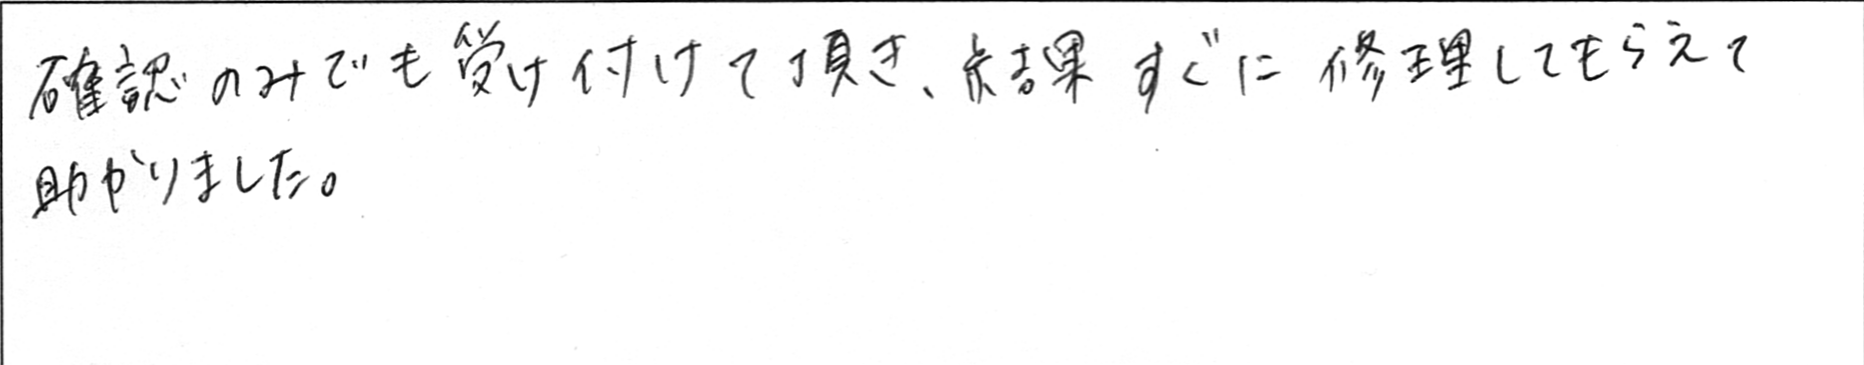 確認のみでも受け付けて頂き、結果すぐに修理してもらえて
助かりました。